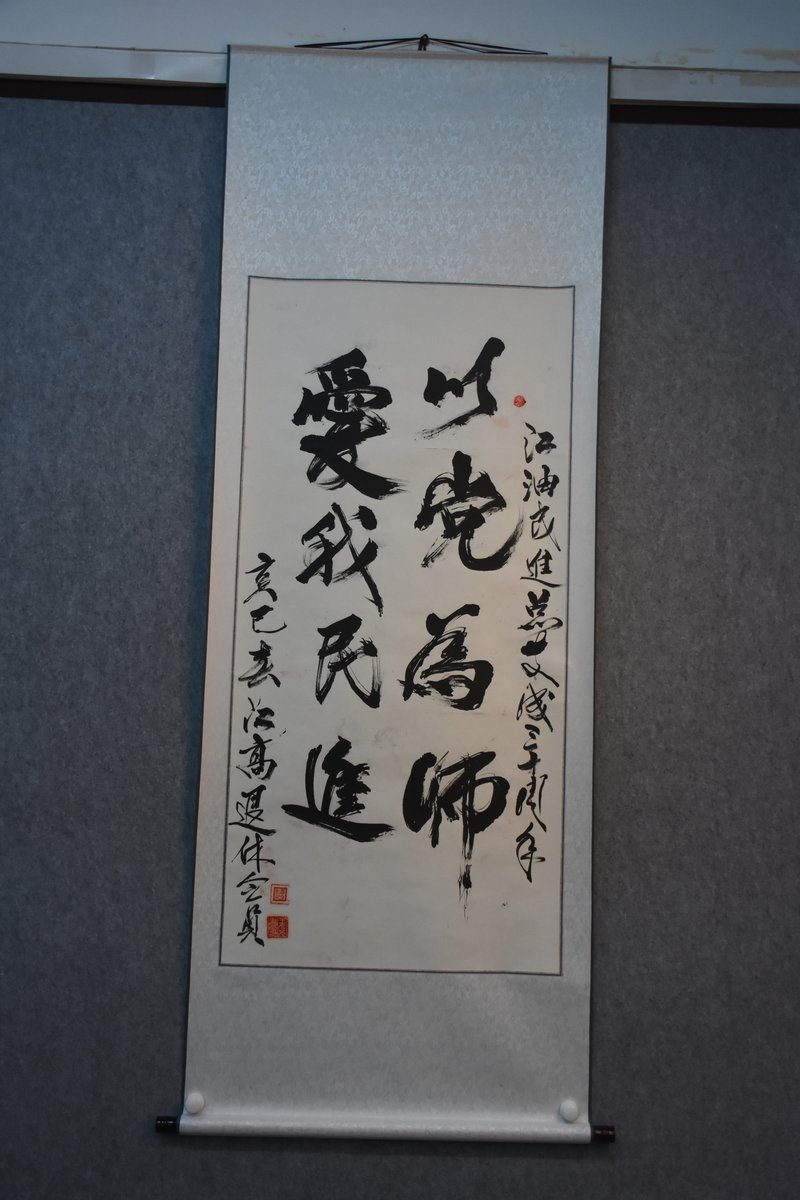 江油民進总支成三十周年
以党為師
愛我民進
亥己春江高退休会員